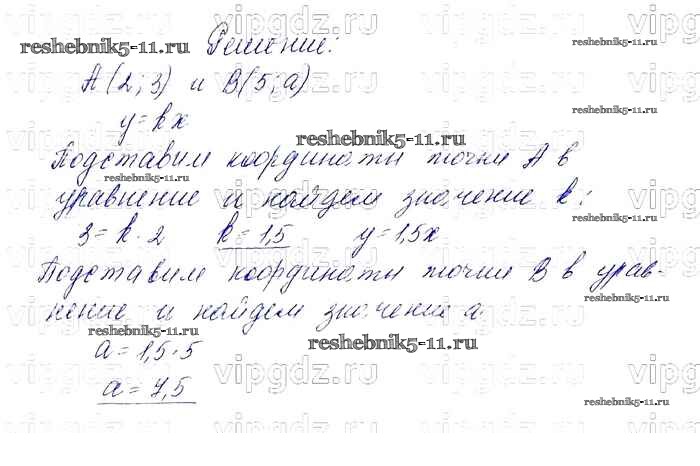 Решение:
A(2; 3) и B(5; a)
y = kx
Подставим координаты точки A в
уравнение и найдем значение k:
3 = k · 2 k = 1,5 y = 1,5x
Подставим координаты точки B в урав-
нение и найдем значение a
a = 1,5 · 5
a = 7,5
reshebnik5-11.ru
reshebnik5-11.ru
reshebnik5-11.ru
reshebnik5-11.ru
reshebnik5-11.ru
reshebnik5-11.ru
reshebnik5-11.ru
reshebnik5-11.ru
reshebnik5-11.ru
vipgdz.ru
vipgdz.ru
vipgdz.ru
vipgdz.ru